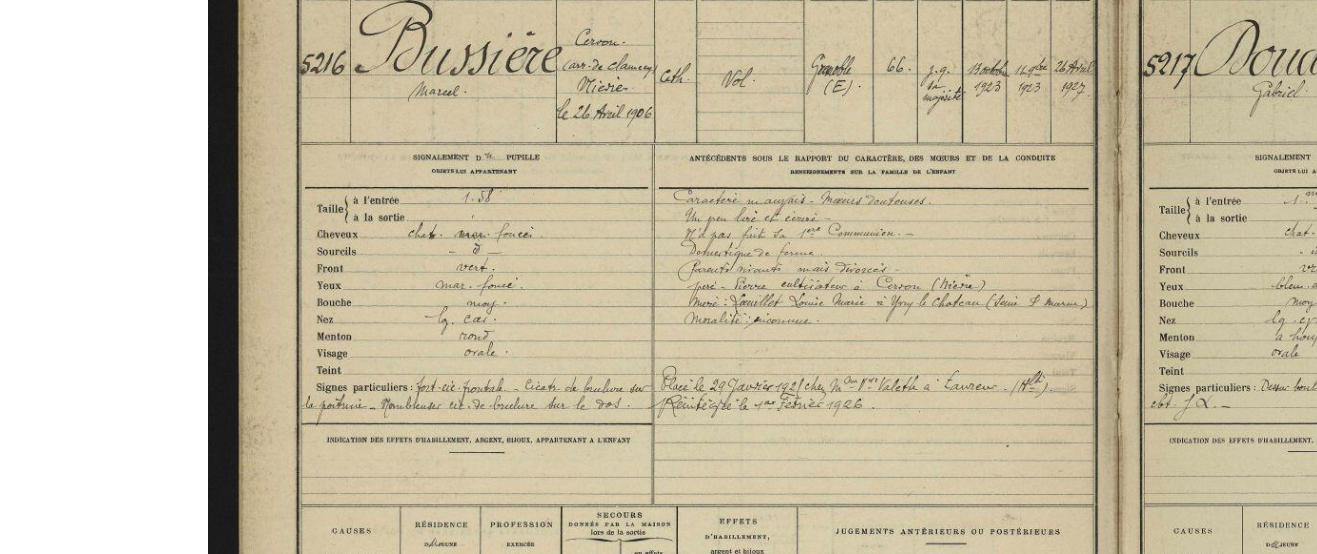 5216 Bussière
Marcel.
Cervon.
(arr. de Clamecy)
Nièvre
le 26 Avril 1906
Cath.
Vol.
Grenoble
(E).
66.
j.q.
sa
majorité
13 octob
1923
12 9bre
1923
26 Avril
1927
SIGNALEMENT D PUPILLE
OBJETS LUI APPARTENANT
Taille à l'entrée 1.58
à la sortie
Cheveux chat. foncé.
Sourcils - d -
Front vert.
Yeux mar. foncé.
Bouche moy.
Nez
Menton rond
Visage ovale.
Teint
Signes particuliers : fort. cic. frontale. - Cicatr. de brulure sur
la poitrine - Nombreuses cic. de brulure sur le dos.
INDICATION DES EFFETS D'HABILLEMENT, ARGENT, BIJOUX, APPARTENANT A L'ENFANT
ANTÉCÉDENTS SOUS LE RAPPORT DU CARACTÈRE, DES MŒURS ET DE LA CONDUITE
RENSEIGNEMENTS SUR LA FAMILLE DE L'ENFANT
Caractère mauvais - Mœurs douteuses.
Un peu lire et écrire -
N'a pas fait sa 1ère Communion. -
Domestique de ferme.
Parents vivants mais divorcés -
père - Pierre cultivateur à Cervon (Nièvre)
Mère : Louise Marie à Château (Seine & Marne)
Moralité : inconnue.
Placé le 29 Janvier chez Valette à
Réintégré le 1er Février 1926.
CAUSES
RÉSIDENCE
PROFESSION
EXERCÉE
SECOURS
DONNÉS PAR LA MAISON
lors de la sortie
en effets
EFFETS
D'HABILLEMENT,
argent et bijoux
JUGEMENTS ANTÉRIEURS OU POSTÉRIEURS
5217
Gabriel
SIGNALEMENT
OBJETS LUI A
Taille à l'entrée 1.
à la sortie
Cheveux chat.
Sourcils
Front
Yeux bleu
Bouche moy
Nez
Menton
Visage ovale
Teint
Signes particuliers :
INDICATION DES EFFETS D'HABILLEMENT,
CAUSES
RÉSIDENCE